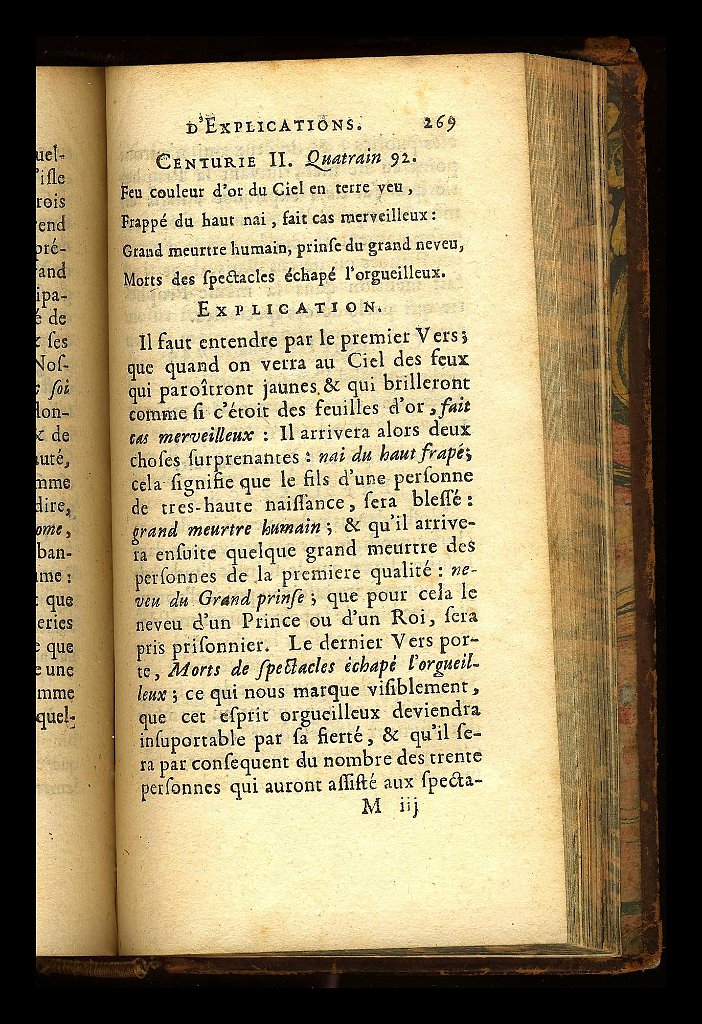 uel-
'isle
rois
rend
pré-
rand
ipa-
é de
ses
Nos-
soi
don-
x de
auté,
mme
dire,
ome,
ban-
ume :
que
eries
e que
e une
omme
quel-
D'EXPLICATIONS. 269
CENTURIE II. Quatrain 92.
Feu couleur d'or du Ciel en terre veu,
Frappé du haut nai, fait cas merveilleux :
Grand meurtre humain, prinse du grand neveu,
Morts des spectacles échapé l'orgueilleux.
EXPLICATION.
Il faut entendre par le premier Vers;
que quand on verra au Ciel des feux
qui paroîtront jaunes & qui brilleront
comme si c'étoit des feuilles d'or, fait
cas merveilleux : Il arrivera alors deux
choses surprenantes : nai du haut frapé;
cela signifie que le fils d'une personne
de tres-haute naissance, sera blessé :
grand meurtre humain ; & qu'il arrive-
ra ensuite quelque grand meurtre des
personnes de la premiere qualité : ne-
veu du Grand prinse ; que pour cela le
neveu d'un Prince ou d'un Roi, sera
pris prisonnier. Le dernier Vers por-
te, Morts de spectacles échapé l'orgueil-
leux ; ce qui nous marque visiblement,
que cet esprit orgueilleux deviendra
insuportable par sa fierté, & qu'il se-
ra par consequent du nombre des trente
personnes qui auront assisté aux specta-
M iij